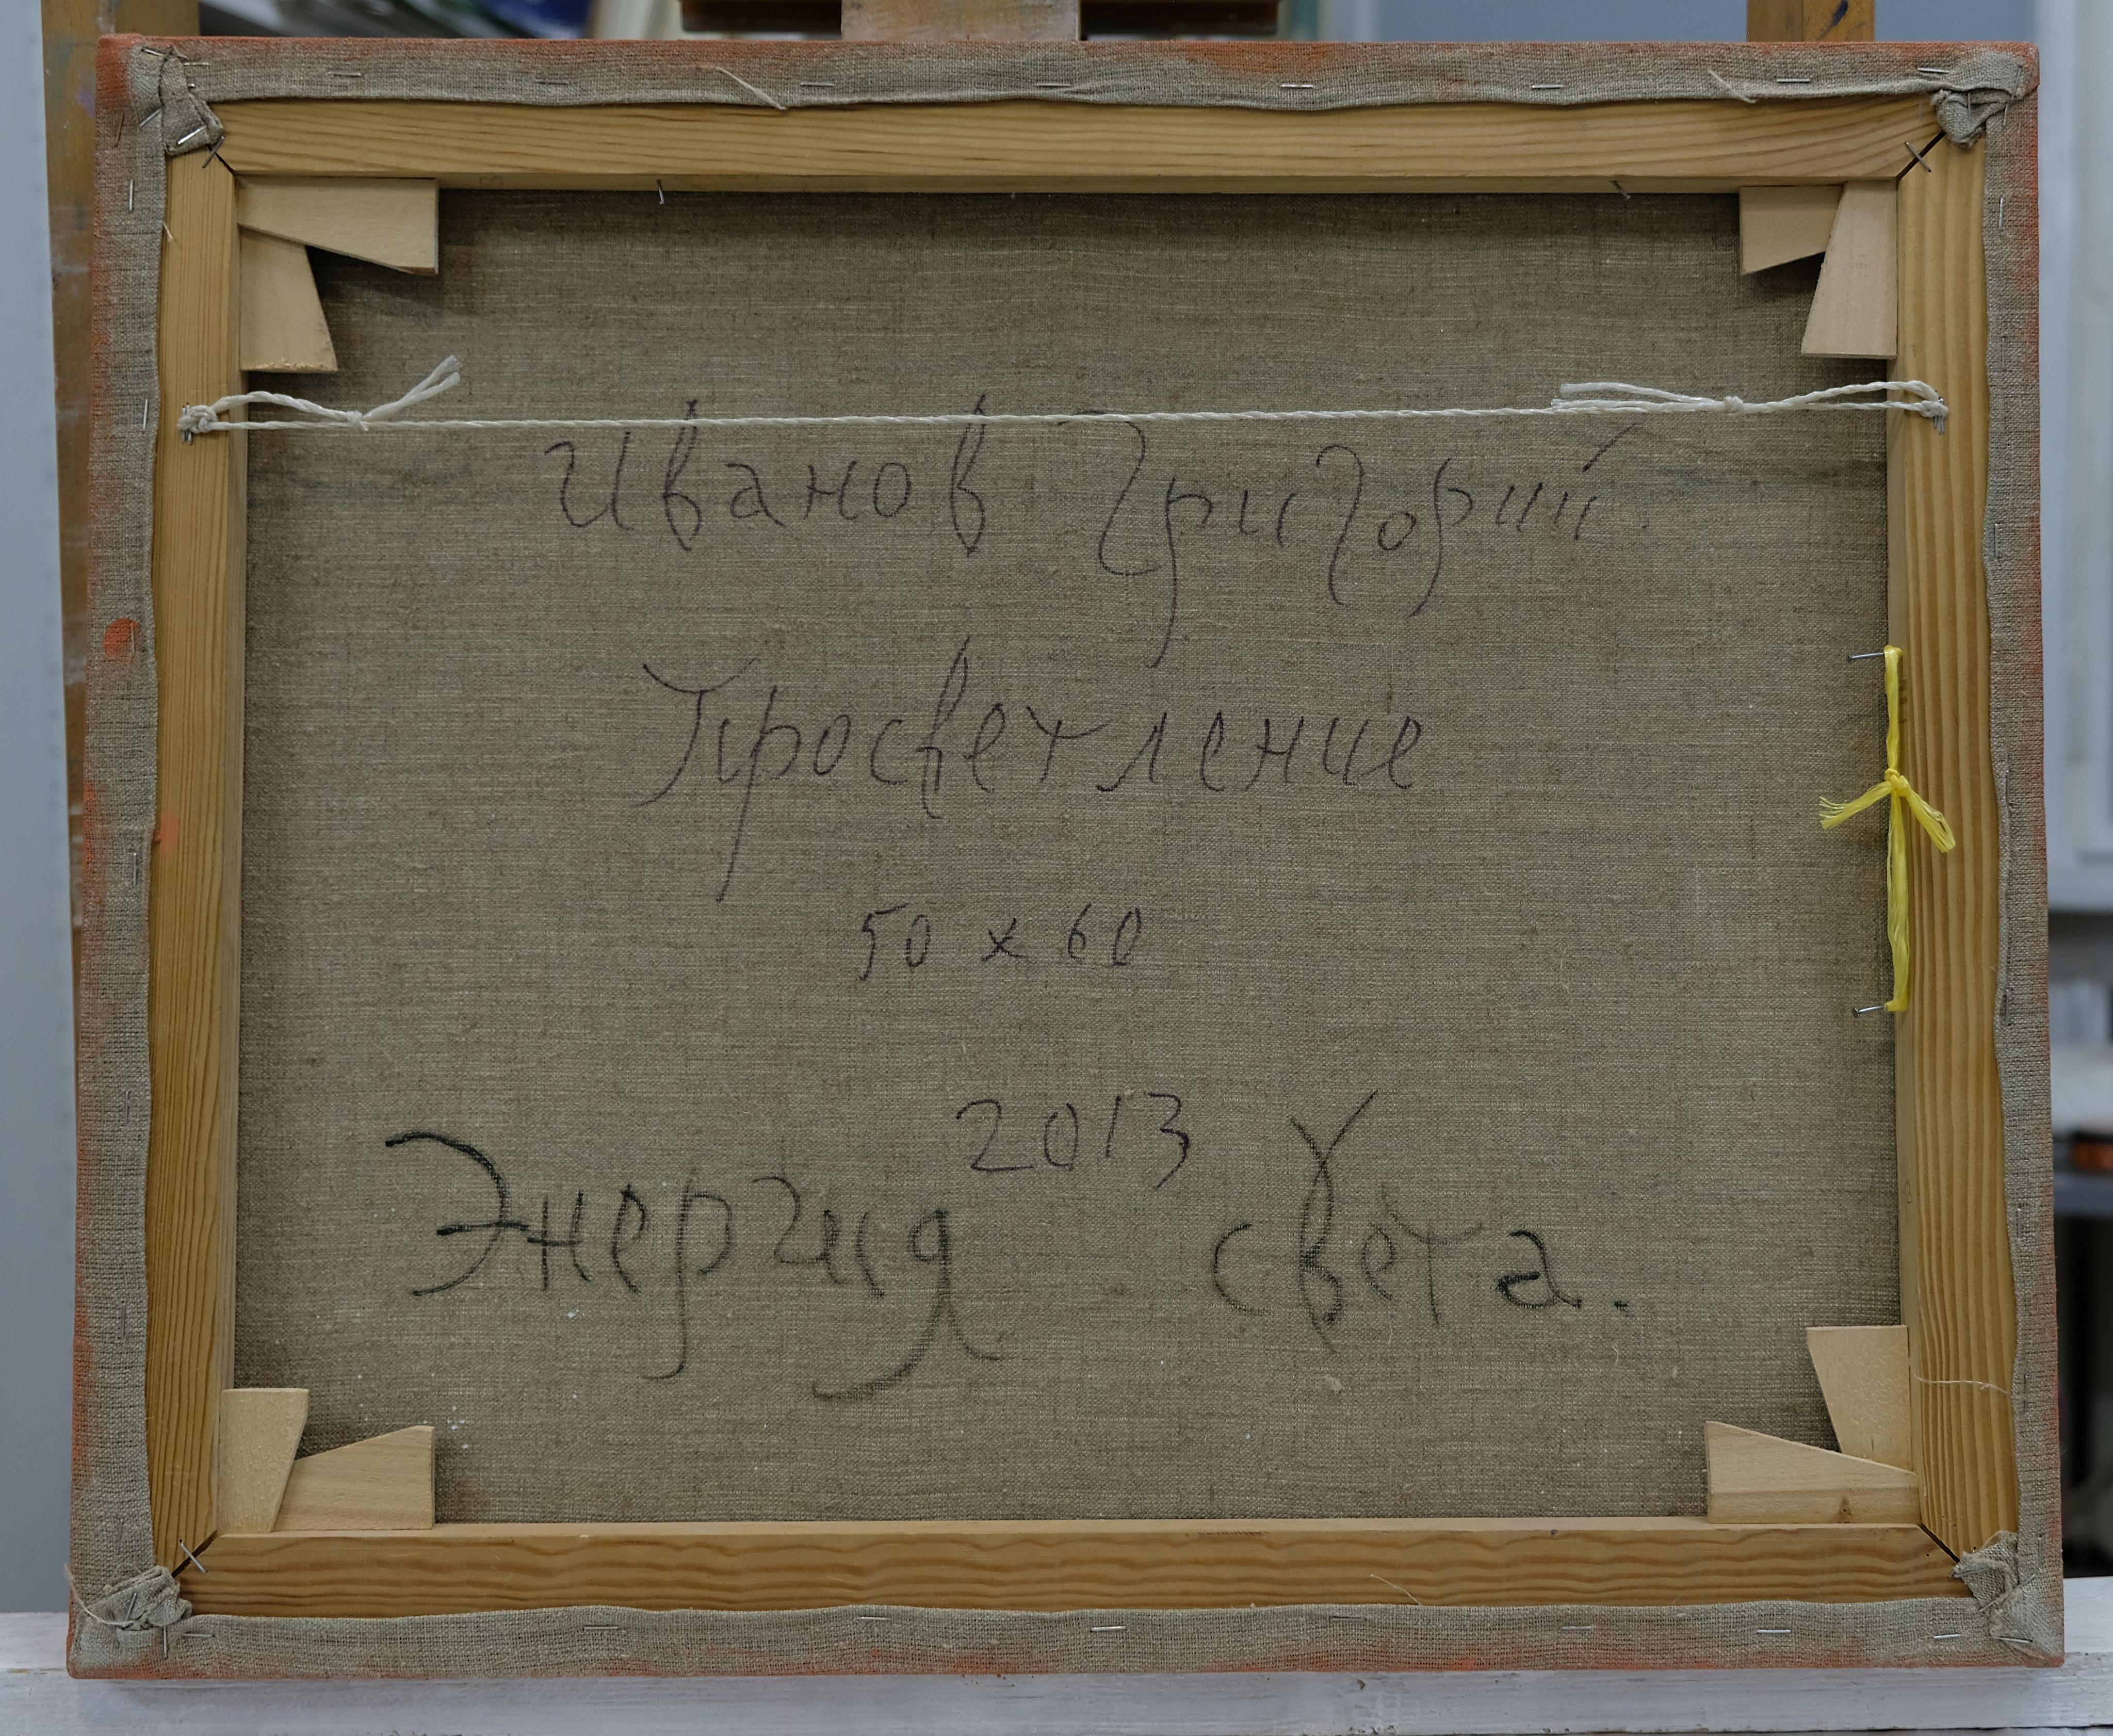 Иванов Григорий
Просветление
50 x 60
2013
Энергия света.